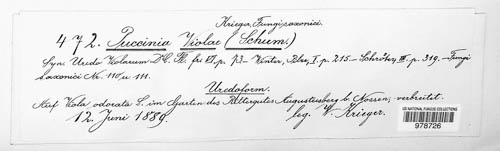 Krieger, Fungi saxonici.
472. Puccinia Violae (Schum.)
Syn. Uredo Violarum DC. Fl. fr. VI. p. 73 – Winter, Pilze, I. p. 215 – Schröter, III. p. 319. – Fungi
saxonici Nr. 110 u. 111.
Uredoform.
Auf Viola odorata L. im Garten des Rittergutes Augustusberg b. Nossen, verbreitet.
12. Juni 1889. leg. W. Krieger.
US NATIONAL FUNGUS COLLECTIONS
978726